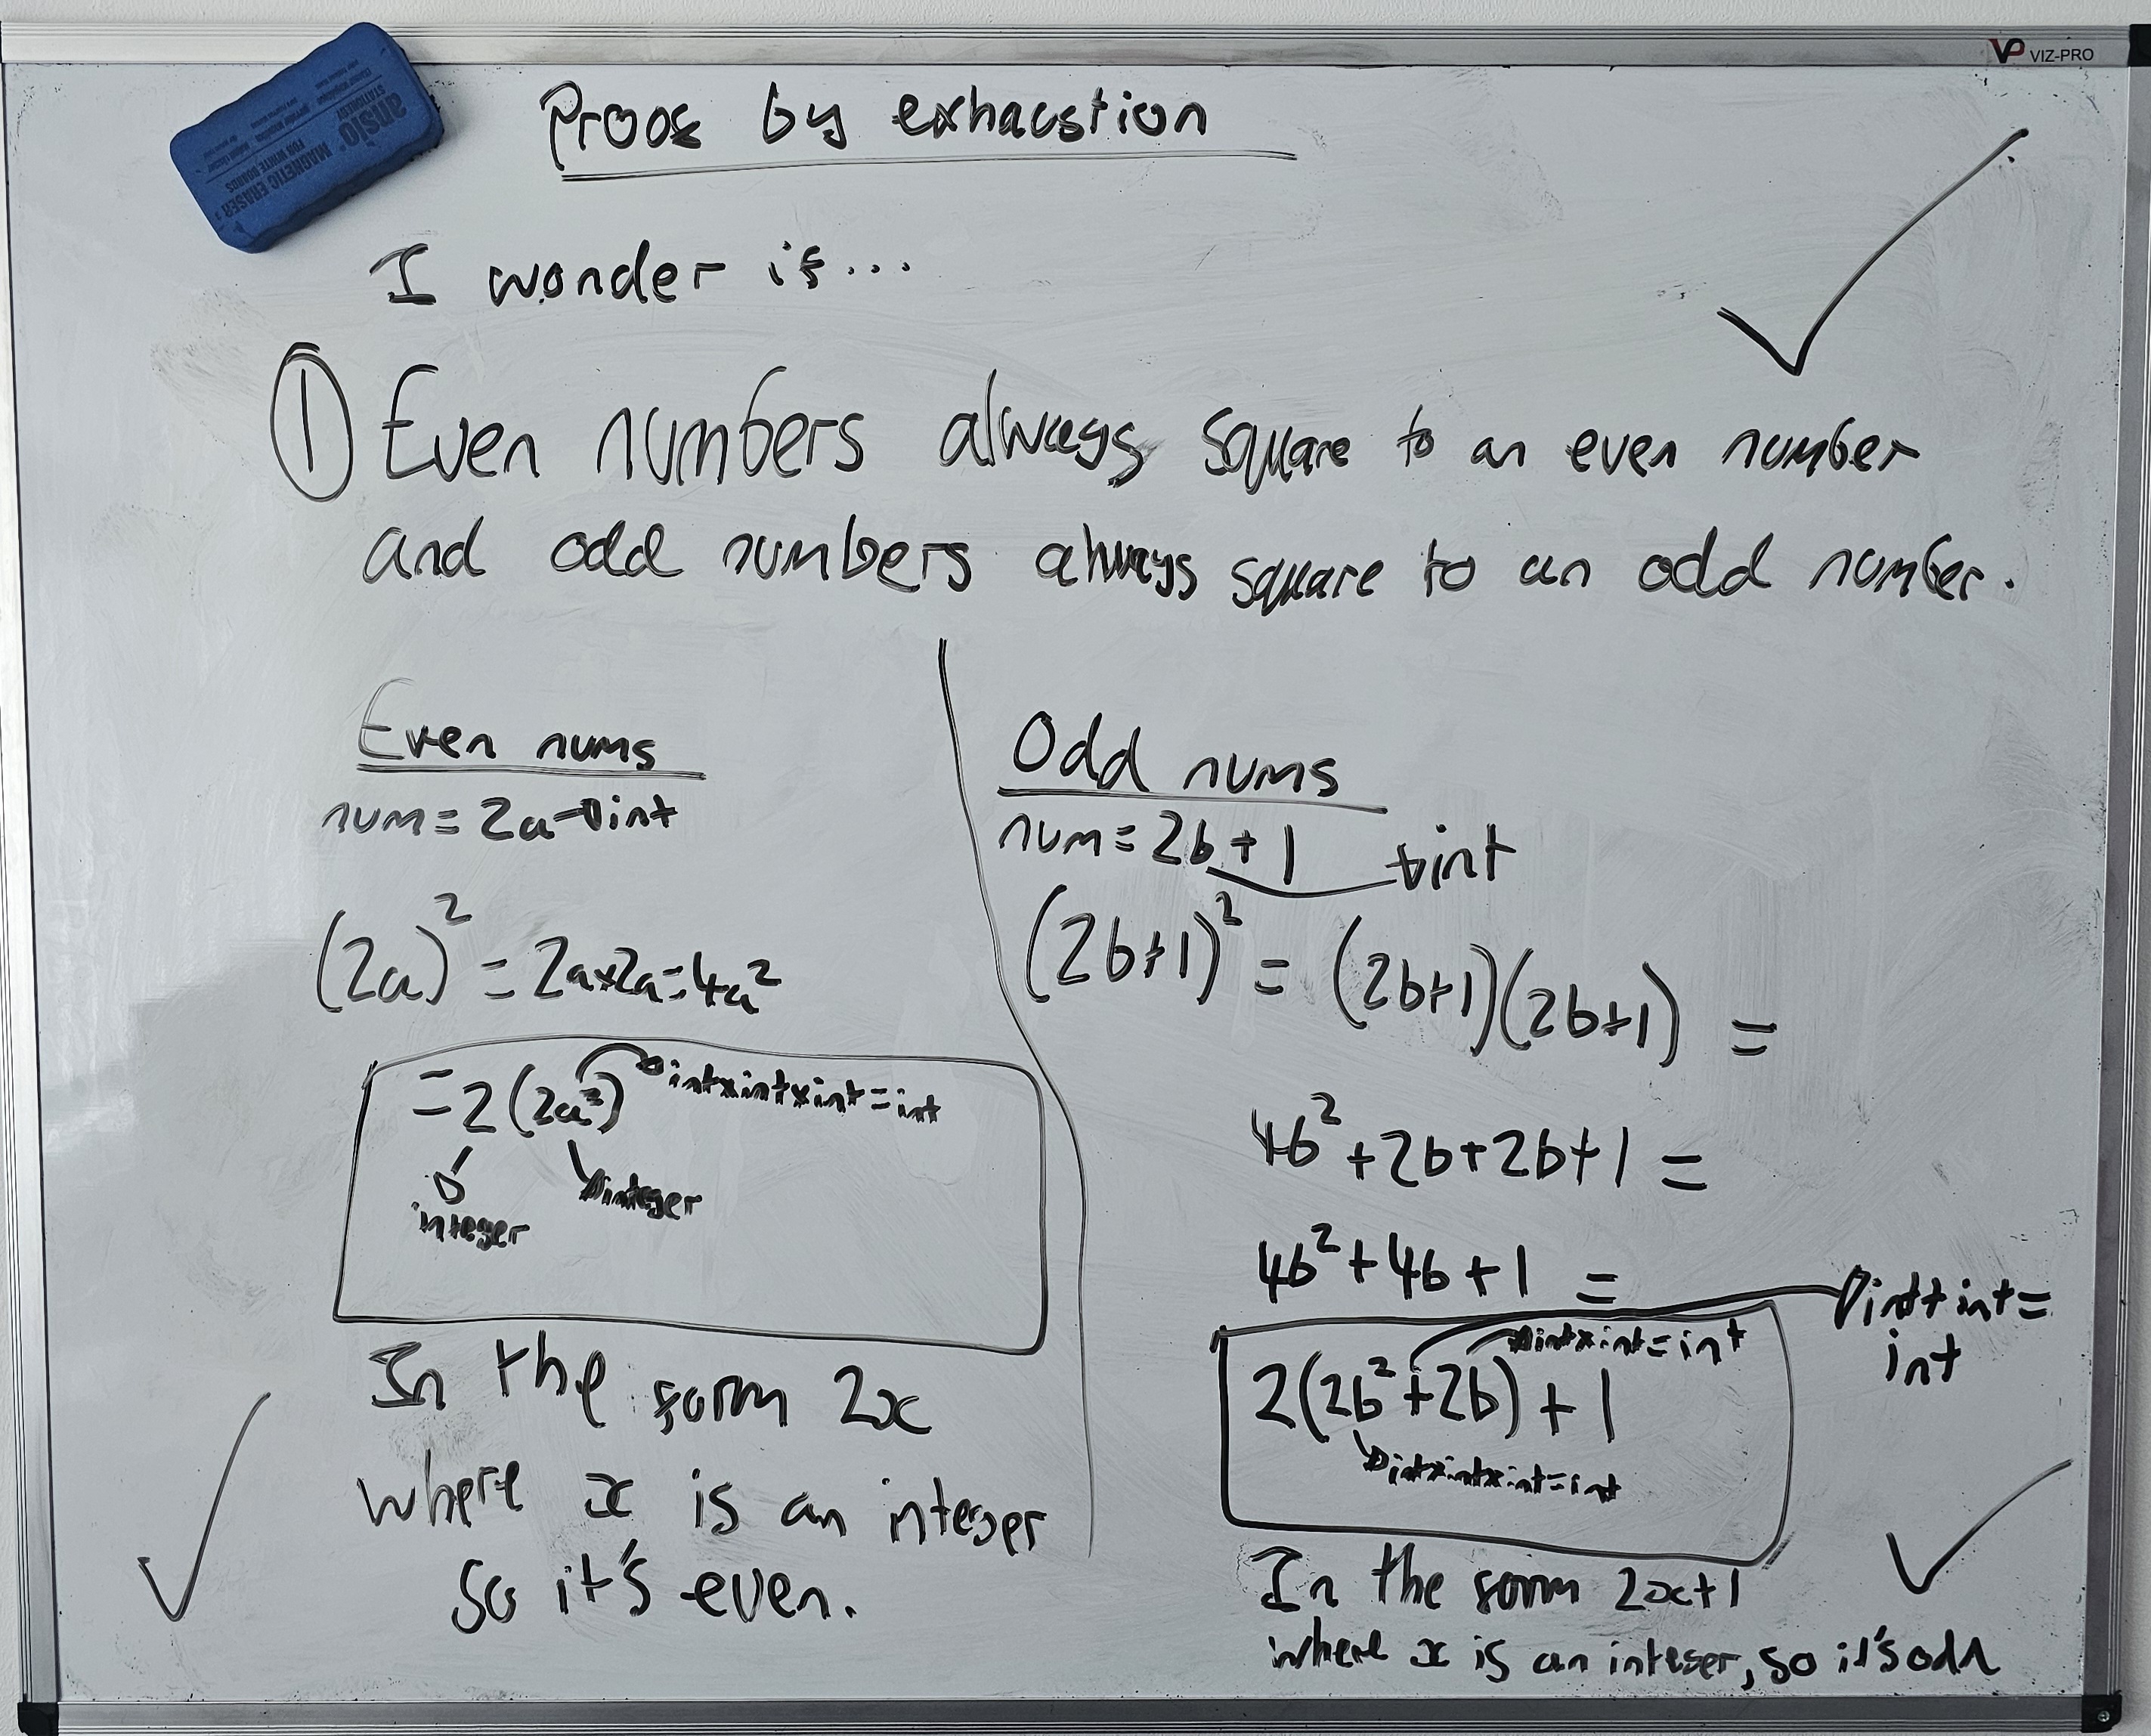 VP VIZ-PRO
ansio
STATIONERY
MAGNETIC ERASER
FOR WHITE BOARDS
Proof by exhaustion
I wonder if...
① Even numbers always square to an even number
and odd numbers always square to an odd number.
Even nums
num = 2a → int
(2a)² = 2a×2a = 4a²
= 2(2a²) → int×int×int = int
integer
integer
In the form 2x
where x is an integer
so it's even.
Odd nums
num = 2b + 1 → int
(2b+1)² = (2b+1)(2b+1) =
4b² + 2b + 2b + 1 =
4b² + 4b + 1 =
int + int =
int
int×int = int
2(2b² + 2b) + 1
int×int×int = int
In the form 2x+1
where x is an integer, so it's odd